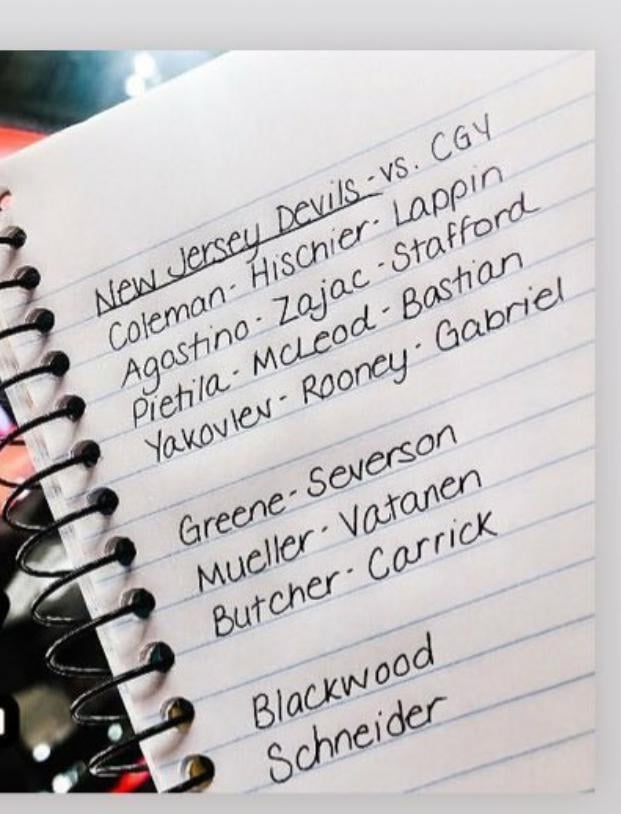 New Jersey Devils - vs. CGY
Coleman - Hischier - Lappin
Agostino - Zajac - Stafford
Pietila - McLeod - Bastian
Yakovlev - Rooney - Gabriel
Greene - Severson
Mueller - Vatanen
Butcher - Carrick
Blackwood
Schneider